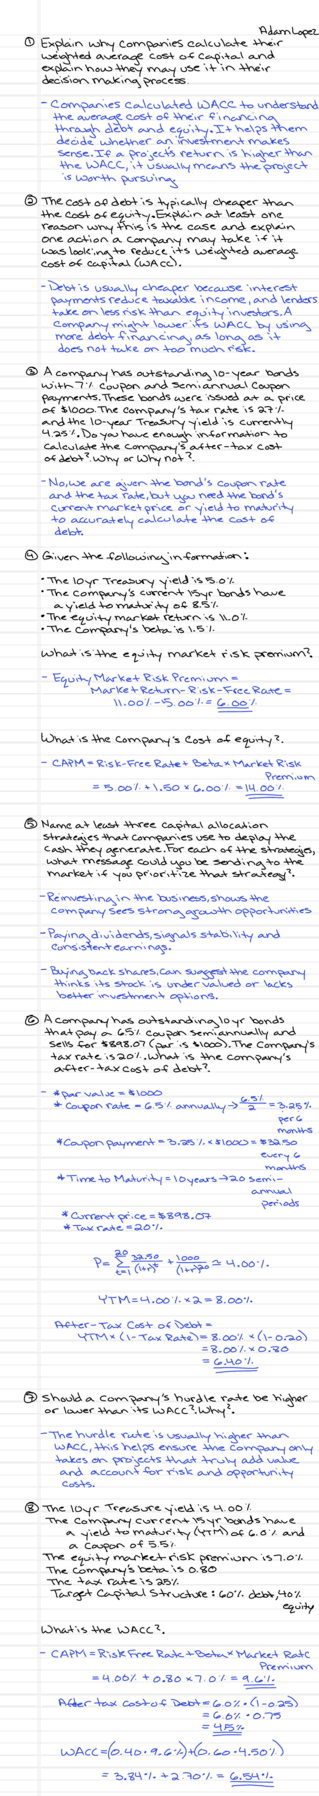 Adam Lopez
① Explain why companies calculate their
weighted average cost of capital and
explain how they may use it in their
decision making process.
- Companies calculated WACC to understand
the average cost of their financing
through debt and equity. It helps them
decide whether an investment makes
sense. If a project's return is higher than
the WACC, it usually means the project
is worth pursuing.
② The cost of debt is typically cheaper than
the cost of equity. Explain at least one
reason why this is the case and explain
one action a company may take if it
was looking to reduce its weighted average
cost of capital (WACC).
- Debt is usually cheaper because interest
payments reduce taxable income, and lenders
take on less risk than equity investors. A
company might lower its WACC by using
more debt financing, as long as it
does not take on too much risk.
③ A company has outstanding 10-year bonds
with 7% coupon and semiannual coupon
payments. These bonds were issued at a price
of $1000. The company's tax rate is 27%
and the 10-year Treasury yield is currently
4.25%. Do you have enough information to
calculate the company's after-tax cost
of debt? Why or Why not?
- No, we are given the bond's coupon rate
and the tax rate, but you need the bond's
current market price or yield to maturity
to accurately calculate the cost of
debt.
④ Given the following information:
• The 10yr Treasury yield is 5.0%
• The company's current 15yr bonds have
a yield to maturity of 8.5%
• The equity market return is 11.0%
• The company's beta is 1.5%
What is the equity market risk premium?
- Equity Market Risk Premium =
Market Return - Risk-Free Rate =
11.00% - 5.00% = 6.00%
What is the company's cost of equity?
- CAPM = Risk-Free Rate + Beta × Market Risk
Premium
= 5.00% + 1.50 × 6.00% = 14.00%
⑤ Name at least three capital allocation
strategies that companies use to deploy the
cash they generate. For each of the strategies,
what message could you be sending to the
market if you prioritize that strategy?
- Reinvesting in the business, shows the
company sees strong growth opportunities
- Paying dividends, signals stability and
consistent earnings.
- Buying back shares, can suggest the company
thinks its stock is undervalued or lacks
better investment options.
⑥ A company has outstanding 10yr bonds
that pay a 6.5% coupon semiannually and
sells for $898.07 (par is $1000). The company's
tax rate is 20%. What is the company's
after-tax cost of debt?
- * par value = $1000
* Coupon rate = 6.5% annually → 6.5%/2 = 3.25%
per 6
months
* Coupon payment = 3.25% × $1000 = $32.50
every 6
months
* Time to Maturity = 10 years → 20 semi-
annual
periods
* Current price = $898.07
* Tax rate = 20%
P = 20 Σ t=1 32.50/(1+r)^t + 1000/(1+r)^20 ≈ 4.00%
YTM = 4.00% × 2 = 8.00%
After-Tax Cost of Debt =
YTM × (1 - Tax Rate) = 8.00% × (1-0.20)
= 8.00% × 0.80
= 6.40%
⑦ Should a company's hurdle rate be higher
or lower than its WACC? Why?
- The hurdle rate is usually higher than
WACC, this helps ensure the company only
takes on projects that truly add value
and account for risk and opportunity
costs.
⑧ The 10yr Treasure yield is 4.00%
The company current 15yr bonds have
a yield to maturity (YTM) of 6.0% and
a coupon of 5.5%
The equity market risk premium is 7.0%
The company's beta is 0.80
The tax rate is 25%
Target Capital Structure: 60% debt, 40%
equity
What is the WACC?
- CAPM = Risk Free Rate + Beta × Market Rate
Premium
= 4.00% + 0.80 × 7.0% = 9.6%
After tax cost of Debt = 6.0% • (1-0.25)
= 6.0% • 0.75
= 4.5%
WACC = (0.40 • 9.6%) + (0.60 • 4.50%)
= 3.84% + 2.70% = 6.54%